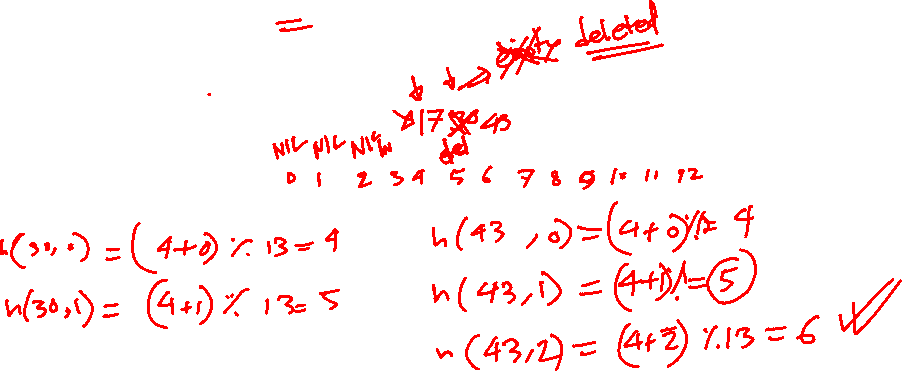 =
deleted
17 43
NIL NIL NIL
del
0 1 2 3 4 5 6 7 8 9 10 11 12
h(30, 0) = (4+0) % 13 = 4
h(30,1) = (4+1) % 13 = 5
h(43, 0) = (4+0) % = 4
h(43,1) = (4+1) % = 5
h(43,2) = (4+2) % 13 = 6